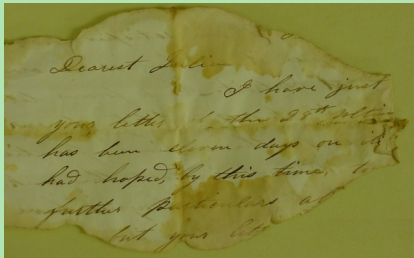 Dearest Julia
I have just
your letter of the 28th ulti
has been eleven days on it
had hoped, by this time, to
further particulars a
but your lett